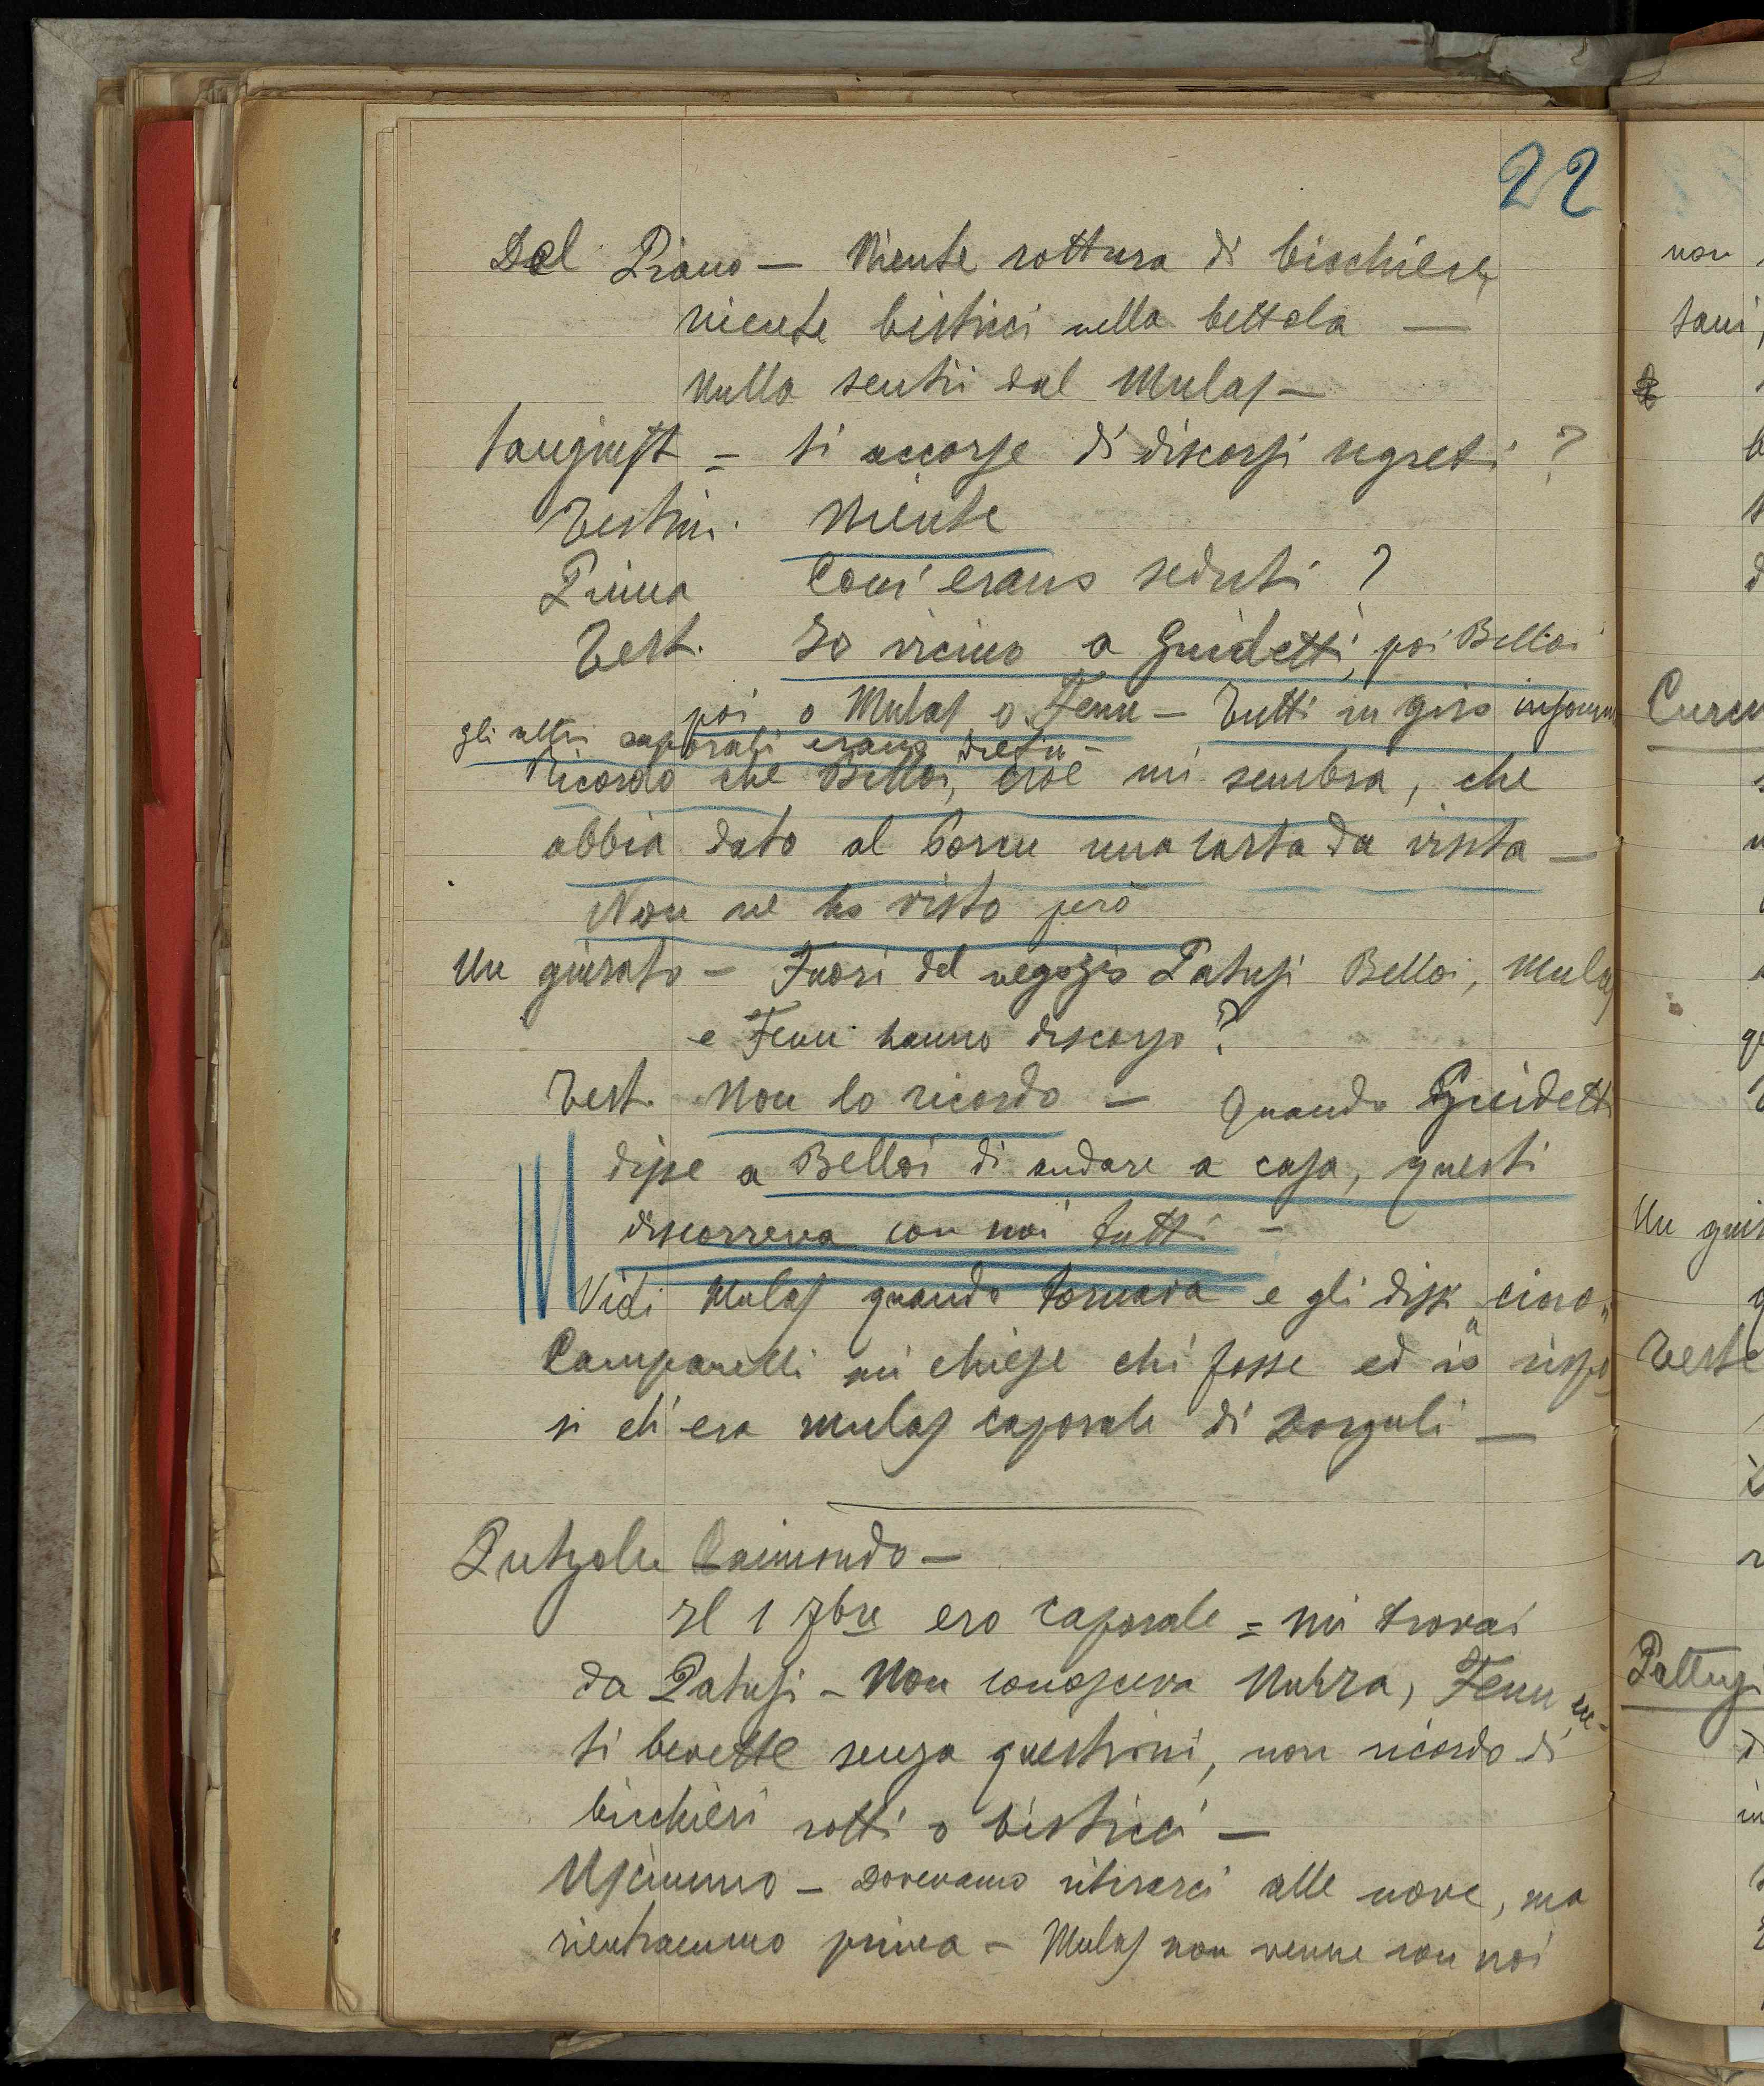 22
Del Piano — Niente rottura di bicchieri,
niente bisticci nella bettola —
Nulla sentii dal Mulas —
Sangiust = Si accorse di discorsi segreti?
Testim. Niente
Pinna Com'erano seduti?
Test. Io vicino a Guidetti, poi Belloi
poi o Mulas o Fenu — Tutti in giro insomma
gli altri caporali erano dietro —
Ricordo che Belloi, cioè mi sembra, che
abbia dato al Porcu una carta da visita —
Non ne ho visto però
Un giurato — Fuori del negozio Patusi Belloi, Mulas
e Fenu hanno discorso?
Test. Non lo ricordo — Quando Guidetti
disse a Belloi di andare a casa, questi
discorreva con noi tutti —
Vidi Mulas quando tornava e gli dissi "ciao"
Campanelli mi chiese chi fosse ed io rispo
si ch'era Mulas caporale di Dorgali —
Putzolu Raimondo —
Il 1 7bre ero caporale = mi trovai
da Patusi — Non conosceva Nurra, Fenu, ec-
Si bevette senza questioni, non ricordo di
bicchieri rotti o bisticci —
Uscimmo — Dovevamo ritirarci alle nove, ma
rientrammo prima — Mulas non venne con noi
non
tani,
Un giur
Teste